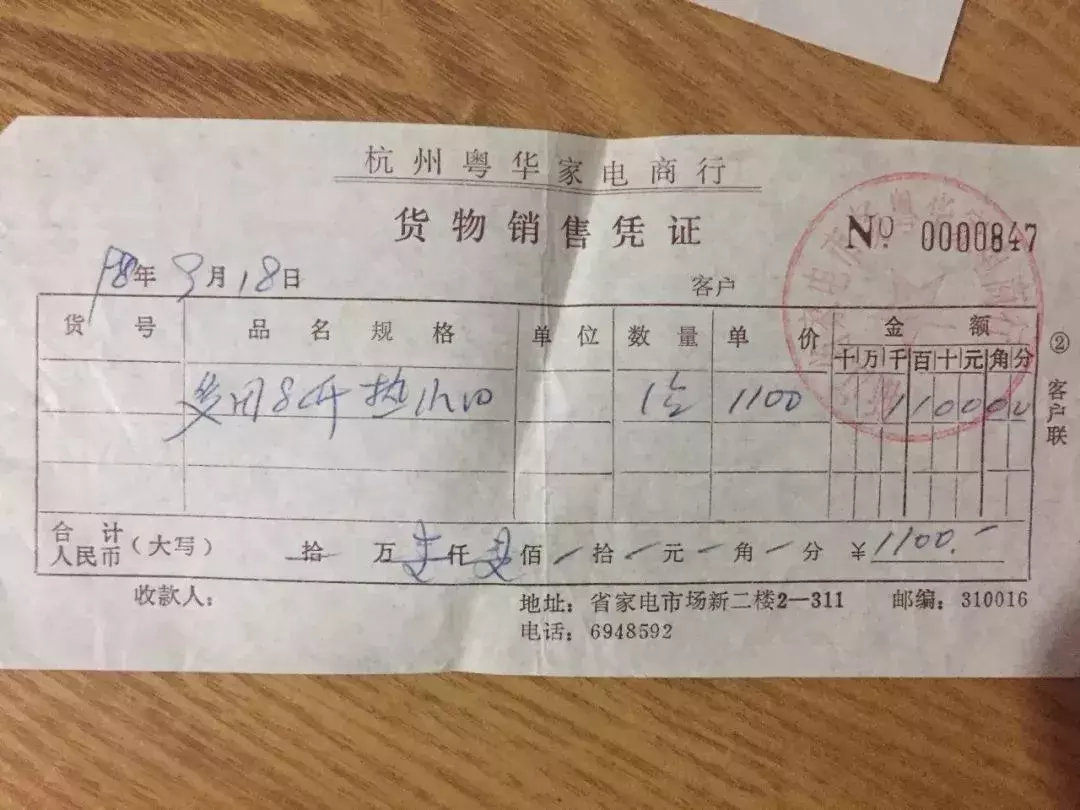 杭州粤华家电商行
货物销售凭证 № 0000847
98年3月18日 客户
货号 品名规格 单位 数量 单价 金额
十万千百十元角分
1台 1100 110000
合计人民币(大写) 拾 万壹仟壹佰 拾 元 角 分 ¥1100.-
收款人: 地址:省家电市场新二楼2—311 邮编:310016
电话:6948592
②客户联